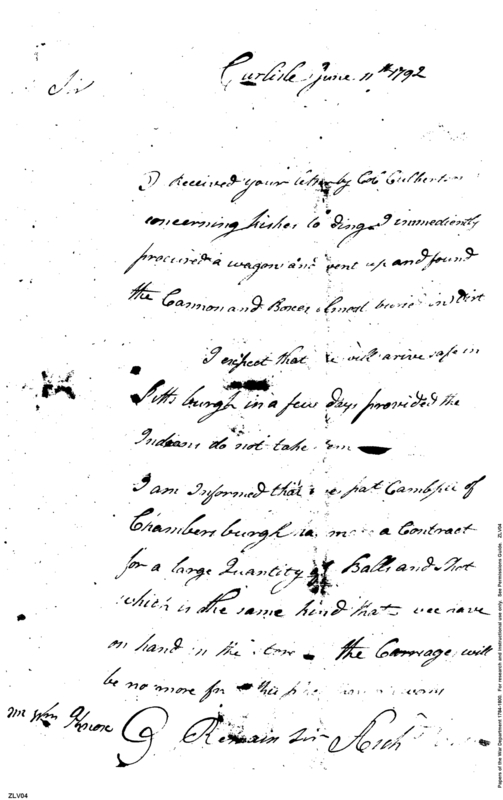 Carlisle June 11th 1792
Sir
I Received your letter by Col Culbertson
concerning Fishes lodings I immediently
procured a wagon and went up and found
the Cannon and Boxes almost buried in Dirt
I expect that he will arive safe in
Pittsburgh in a few days provided the
Indians do not take
I am Informed that pat Cambpel of
Chambersburgh has made a Contract
for a large Quantity of Balls and Shot
which is the same kind that we have
on hand in the Store the Carriage will
be no more for this
Mr Wm Knox
I Remain Sir
ZLV04
Papers of the War Department 1784-1800. For research and instructional use only. See Permissions Guide. ZLV04